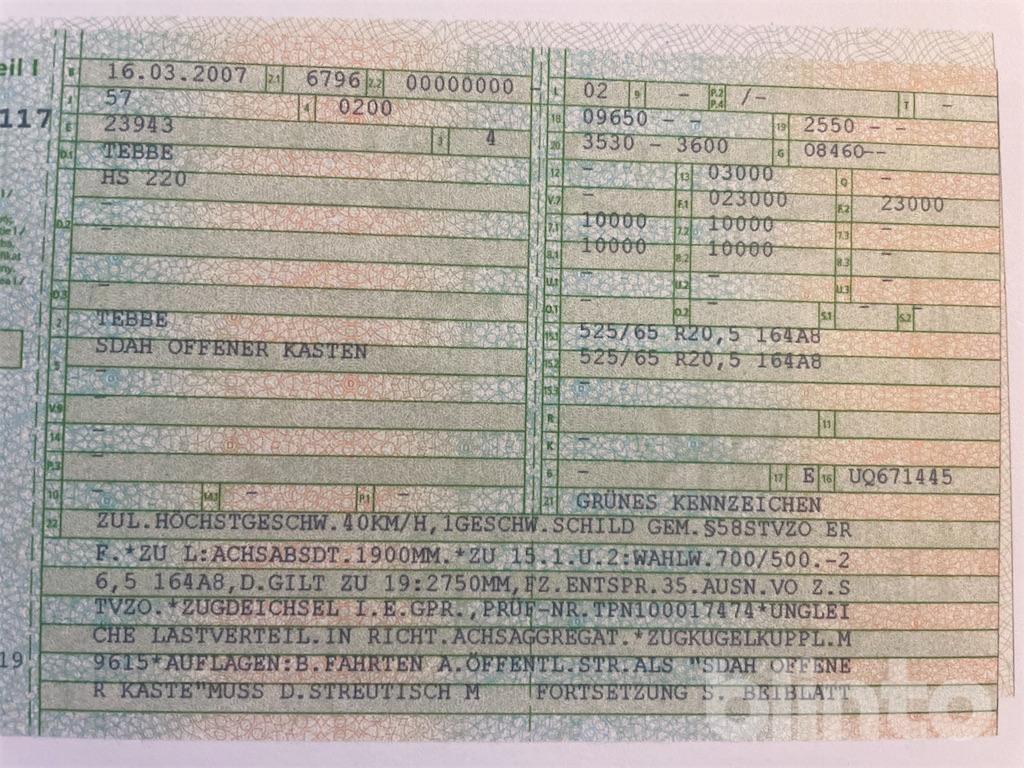 eil I
117
19
B 16.03.2007 2.1 6796 2.2 00000000
J 57 4 0200
E 23943 3 4
D.1 TEBBE
HS 220
-
D.2 -
-
D.3
2 TEBBE
5 SDAH OFFENER KASTEN
-
V.9 -
14 -
P.3 -
10 - 14.1 - P.1 -
L 02 9 - P.2 P.4 /- T -
18 09650 - - 19 2550 - -
20 3530 - 3600 G 08460--
12 - 13 03000 Q -
V.7 - F.1 023000 F.2 23000
7.1 10000 7.2 10000 7.3 -
8.1 10000 8.2 10000 8.3 -
U.1 - U.2 - U.3 -
O.1 - O.2 - S.1 - S.2 -
15.1 525/65 R20,5 164A8
15.2 525/65 R20,5 164A8
15.3 -
R - 11
K -
6 - 17 E 16 UQ671445
21 GRÜNES KENNZEICHEN
22 ZUL.HÖCHSTGESCHW.40KM/H,1GESCHW.SCHILD GEM.§58STVZO ER
F.*ZU L:ACHSABSDT.1900MM.*ZU 15.1.U.2:WAHLW.700/500.-2
6,5 164A8,D.GILT ZU 19:2750MM,FZ.ENTSPR.35.AUSN.VO Z.S
TVZO.*ZUGDEICHSEL I.E.GPR.,PRÜF-NR.TPN100017474*UNGLEI
CHE LASTVERTEIL.IN RICHT.ACHSAGGREGAT.*ZUGKUGELKUPPL.M
9615*AUFLAGEN:B.FAHRTEN A.ÖFFENTL.STR.ALS "SDAH OFFENE
R KASTE"MUSS D.STREUTISCH M FORTSETZUNG S. BEIBLATT
bilinto